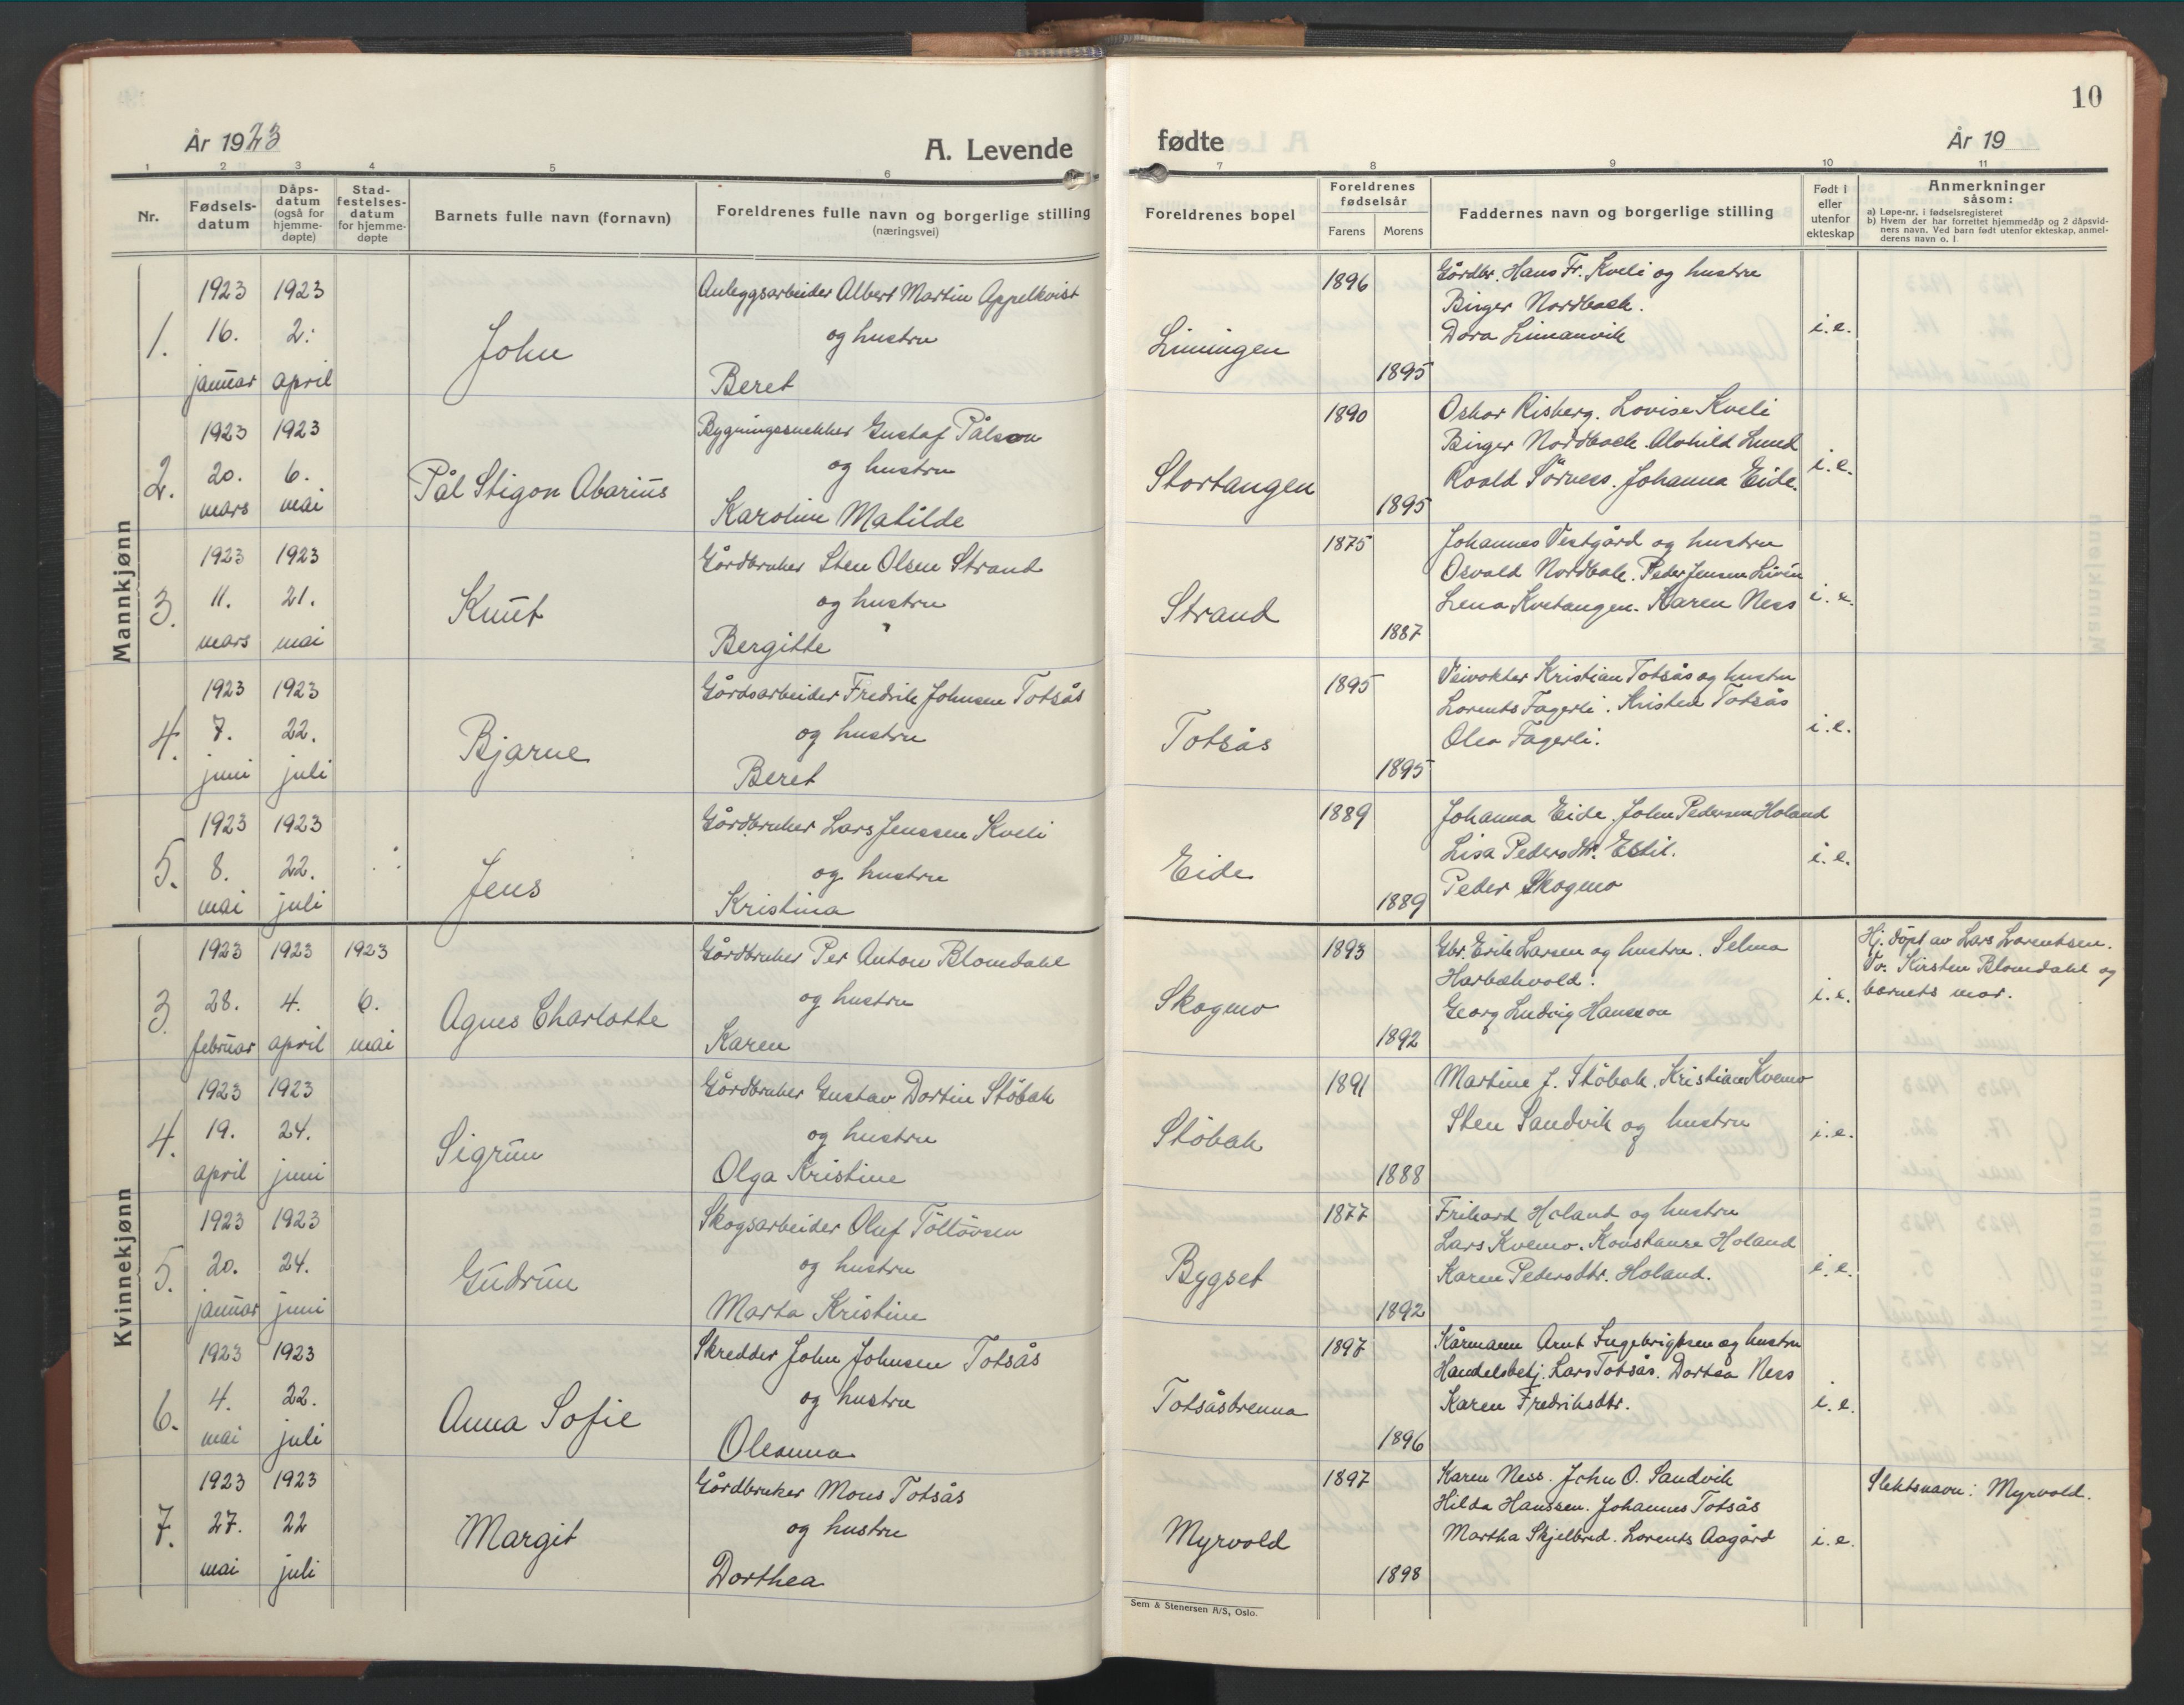 10
År 1923
A. Levende
fødte
År 19
1 2 3 4 5 6 7 8 9 10 11
Nr.
Fødsels-
datum
Dåps-
datum
(også for
hjemme-
døpte)
Stad-
festelses-
datum
for hjemme-
døpte
Barnets fulle navn (fornavn)
Foreldrenes fulle navn og borgerlige stilling
(næringsvei)
Foreldrenes bopel
Foreldrenes
fødselsår
Farens
Morens
Faddernes navn og borgerlige stilling
Født i
eller
utenfor
ekteskap
Anmerkninger
såsom:
a) Løpe-nr. i fødselsregisteret
b) Hvem der har forrettet hjemmedåp og 2 dåpsvid-
ners navn. Ved barn født utenfor ekteskap, anmel-
derens navn o. l.
Mannkjønn
1.
1923
16.
januar
1923
2.
april
John
Anleggsarbeider Albert Martin Appelkvist
og hustru
Beret
Limingen
1896
1895
Gårdbr. Hans Fr. Kveli og hustru
Birger Nordbach.
Dora Limanvik
i.e.
2.
1923
20.
mars
1923
6.
mai
Pål Stigon Abarius
Bygningssnekker Gustaf Pålson
og hustru
Karoline Matilde
Stortangen
1890
1895
Oskar Risberg. Lovise Kveli
Birger Nordbach. Alvhild Lund
Roald Sörness. Johanna Eide.
i.e.
3.
1923
11.
mars
1923
21.
mai
Knut
Gårdbruker Sten Olsen Strand
og hustru
Bergitte
Strand
1875
1887
Johannes Vestgård og hustru
Osvald Nordbak. Peder Jensen
Lena Kvetangen. Karen Ness
i.e.
4.
1923
7.
juni
1923
22.
juli
Bjarne
Gårdsarbeider Fredrik Johnsen Totsås
og hustru
Beret
Totsås
1895
1895
Veivokter Kristian Totsås og hustru
Lorents Fagerli. Totsås
Olea Fagerli.
i.e.
5.
1923
8.
mai
1923
22.
juli
Jens
Gårdbruker Lars Jenssen Kveli
og hustru
Kristina
Eide
1889
1889
Johanna Eide. John Pedersen Holand
Lisa Pedersdtr. Estil.
Peder Skogmo
i.e.
Kvinnekjønn
3.
1923
28.
februar
1923
4.
april
1923
6.
mai
Agnes Charlotte
Gårdbruker Per Anton Blomdahl
og hustru
Karen
Skogmo
1893
1892
Gbr. Erik Larsen og hustru. Selma
Harbækvold.
Georg Ludvig Hansson
i.e.
Hj. döpt av Lars Lorentsen.
Vv. Kirsten Blomdahl og
barnets mor.
4.
1923
19.
april
1923
24.
juni
Sigrun
Gårdbruker Gustav Dortin Stöbak
og hustru
Olga Kristine
Stöbak
1891
1888
Martine J. Stöbak. Kristian Kvemo
Sten Sandvik og hustru
i.e.
5.
1923
20.
januar
1923
24.
juni
Gudrun
Skogsarbeider Oluf Töllövsen
og hustru
Marta Kristine
Bygset
1877
1892
Frihard Holand og hustru
Lars Kvemo. Konstanse Holand
Karen Pedersdtr. Holand.
i.e.
6.
1923
4.
mai
1923
22.
juli
Anna Sofie
Skredder John Johnsen Totsås
og hustru
Oleanna
Totsåsdrenna
1897
1896
Kårmann Arnt Ingebrigtsen og hustru
Handelsbetj. Lars Totsås. Dortea Ness
Karen Fredriksdtr.
i.e.
7.
1923
27.
mai
1923
22
juli
Margit
Gårdbruker Mons Totsås
og hustru
Dorthea
Myrvold
1897
1898
Karen Ness. John O. Sandvik
Hilda Hanssen. Johannes Totsås
Martha Skjelbred. Lorents Aagård
i.e.
Slektsnavn: Myrvold.
Sem & Stenersen A/S, Oslo.